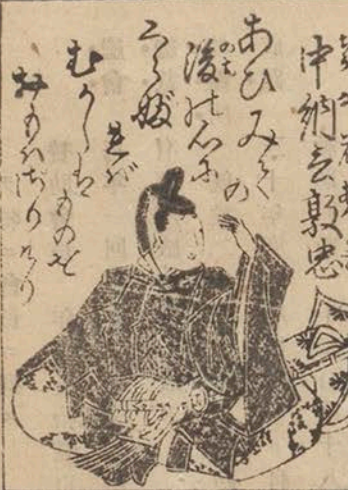 中納言敦忠
あひみての
後の心に
くらぶ
れば
むかしはものを
おもはざりけり